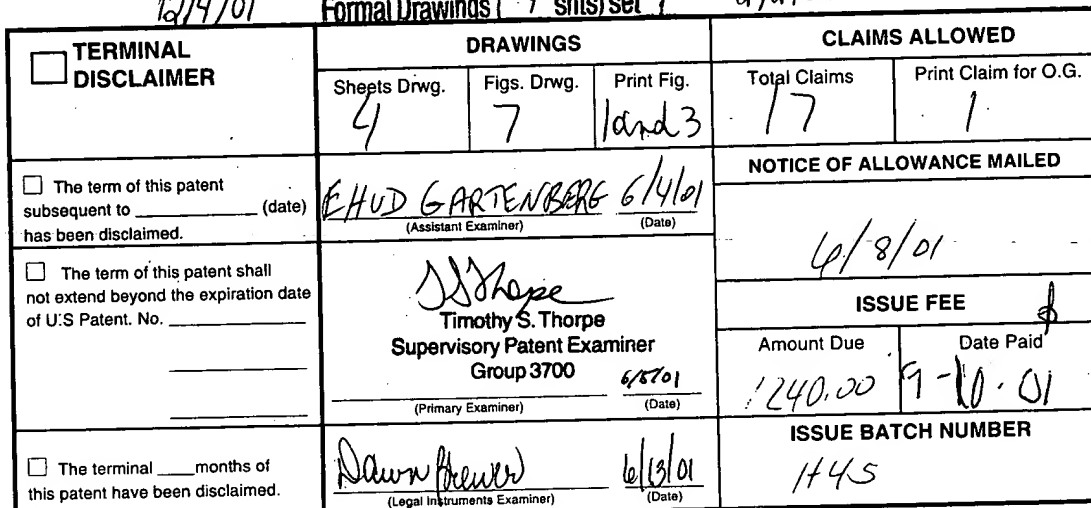 12/4/01 Formal Drawings ( 7 shts) set 1
TERMINAL
DISCLAIMER
DRAWINGS
Sheets Drwg. Figs. Drwg. Print Fig.
4 7 1 and 3
CLAIMS ALLOWED
Total Claims Print Claim for O.G.
17 1
The term of this patent
subsequent to (date)
has been disclaimed.
EHUD GARTENBERG 6/4/01
(Assistant Examiner) (Date)
NOTICE OF ALLOWANCE MAILED
6/8/01
The term of this patent shall
not extend beyond the expiration date
of U.S Patent. No.
Timothy S. Thorpe
Supervisory Patent Examiner
Group 3700 6/5/01
(Primary Examiner) (Date)
ISSUE FEE
Amount Due Date Paid
1240.00 9-10-01
The terminal months of
this patent have been disclaimed.
Dawn Brewer 6/13/01
(Legal Instruments Examiner) (Date)
ISSUE BATCH NUMBER
H45